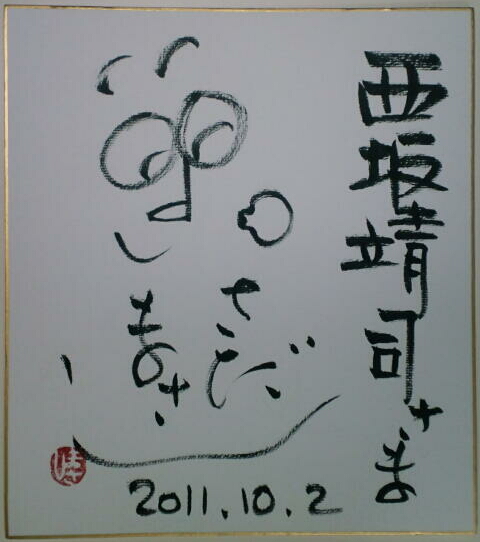 西坂靖司さま
さだ
まさし
2011.10.2